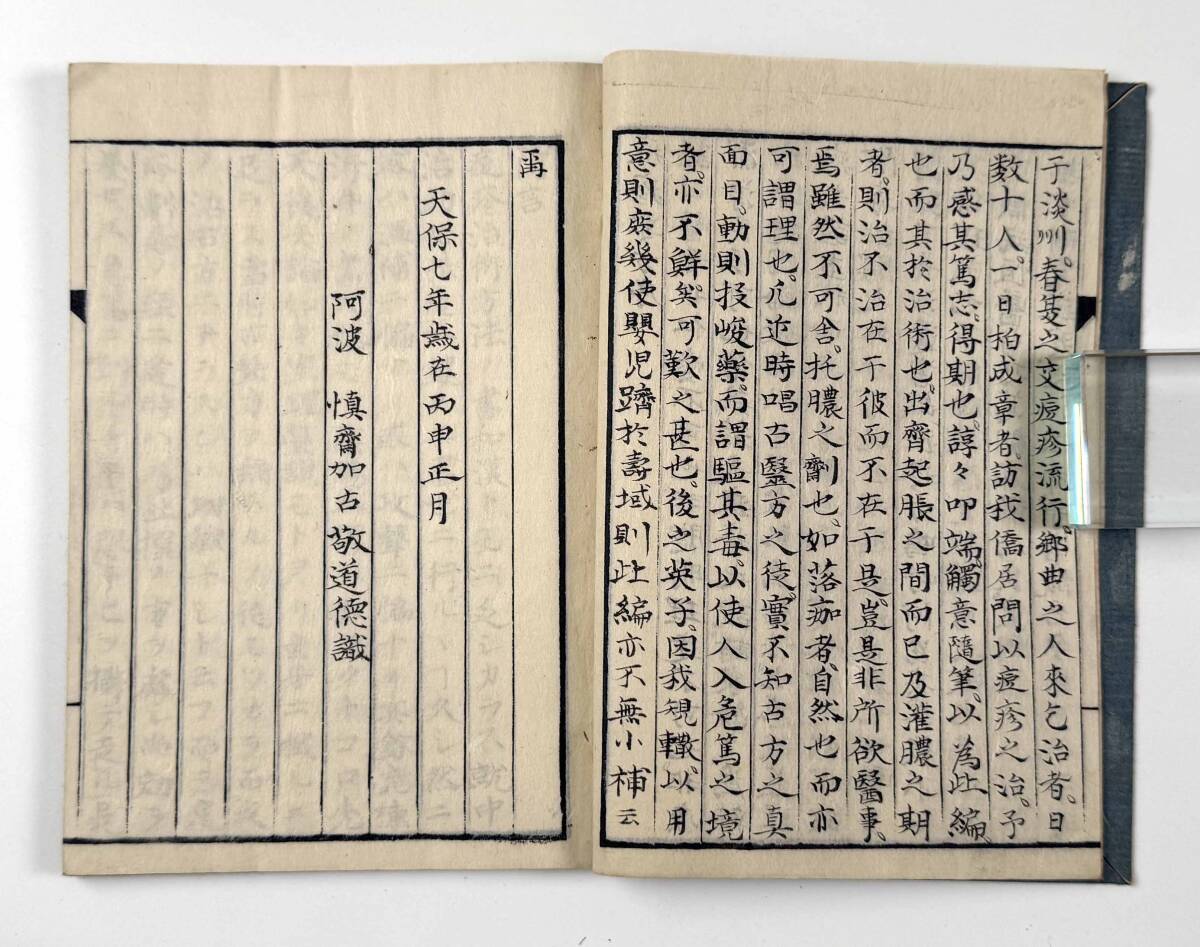 于淡州。春夏之交痘疹流行。鄉曲之人來乞治者。日
数十人。一日柏成章者。訪我僑居問以痘疹之治。予
乃感其篤志。得期也。諄々叩端。觸意隨筆。以為此編。
也而其於治術也。出齊起脹之間而已及灌膿之期
者。則治不治在于彼而不在于是。豈是非所欲醫事。
焉雖然不可舍。托膿之劑也。如落痂者。自然也而亦
可謂理也。凡近時唱古醫方之徒。實不知古方之真
面目。動則投峻藥。而謂驅其毒。以使人入危篤之境
者。亦不鮮矣。可歎之甚也。後之英子。因我規轍。以用
意則庶幾使嬰児躋於壽域則此編亦不無小補云
爾
天保七年歲在丙申正月
阿波 慎齋加古敬道德識